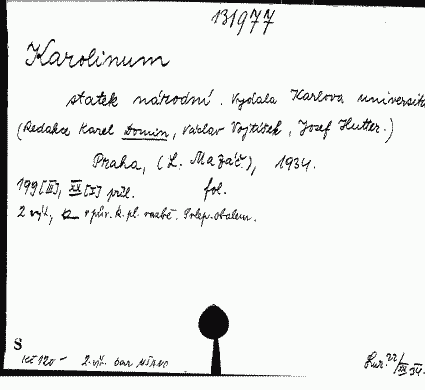 131977
Karolinum
statek národní. Vydala Karlova universit
(Redakce Karel Domin, Václav Vojtíšek, Josef Hutter.)
Praha, (L. Mazáč), 1934.
199 [III], XX [I] příl. fol.
2 výt, v pův. k. pl. vazbě. Prlep. obalem.
S
Kč 120 - 2. výt. dar